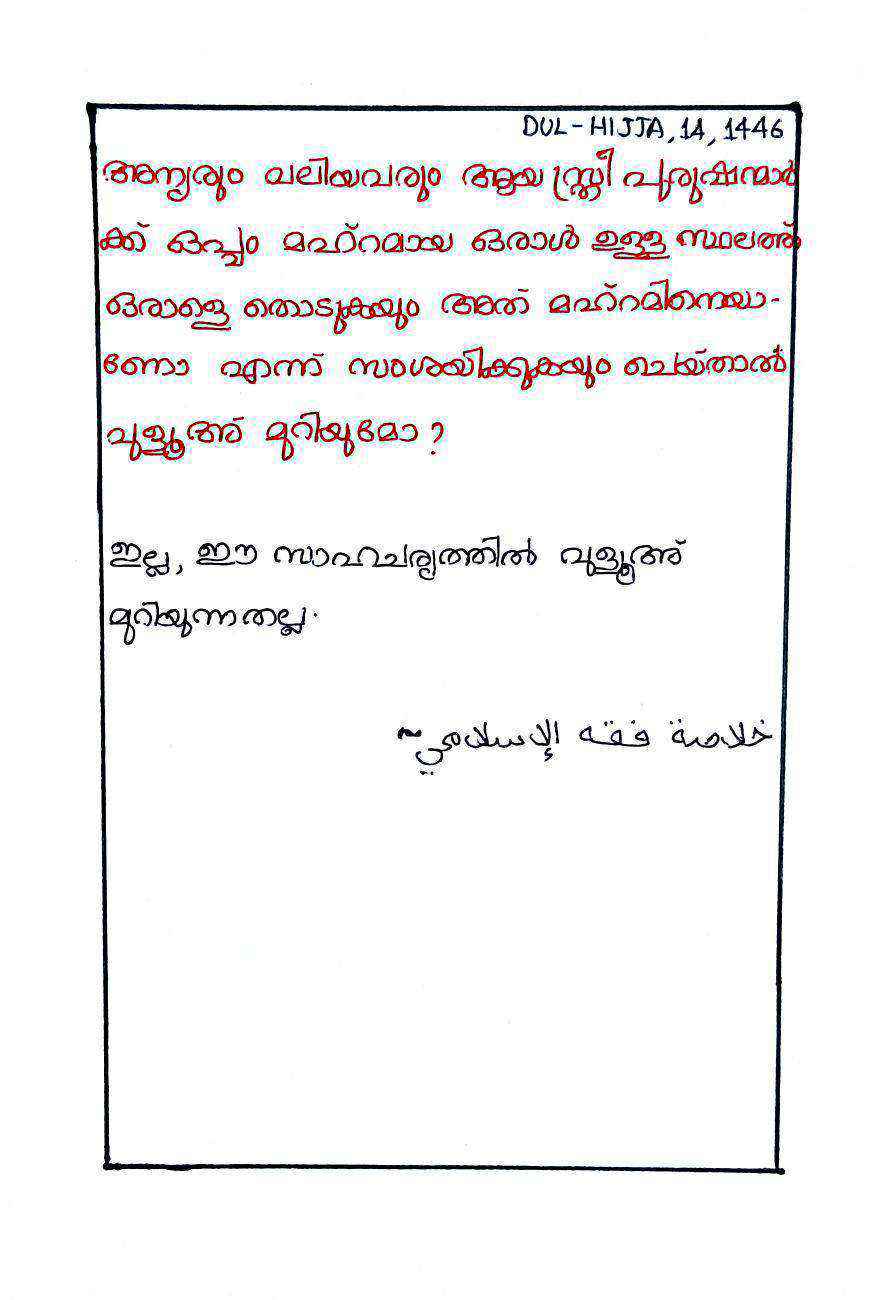 DUL-HIJJA, 14, 1446
അന്യരും വലിയവരും ആയ സ്ത്രീ പുരുഷന്മാർ
ക്ക് ഒപ്പം മഹ്റമായ ഒരാൾ ഉള്ള സ്ഥലത്ത്
ഒരാളെ തൊടുകയും അത് മഹ്റമിനെയാ-
ണോ എന്ന് സംശയിക്കുകയും ചെയ്താൽ
വുളൂഅ് മുറിയുമോ?
ഇല്ല, ഈ സാഹചര്യത്തിൽ വുളൂഅ്
മുറിയുന്നതല്ല.
خلاصة فقه الإسلامي ~